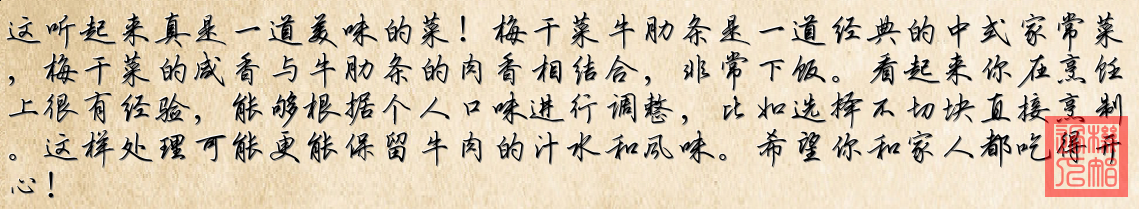 这听起来真是一道美味的菜！梅干菜牛肋条是一道经典的中式家常菜
，梅干菜的咸香与牛肋条的肉香相结合，非常下饭。看起来你在烹饪
上很有经验，能够根据个人口味进行调整，比如选择不切块直接烹制
。这样处理可能更能保留牛肉的汁水和风味。希望你和家人都吃得开
心！